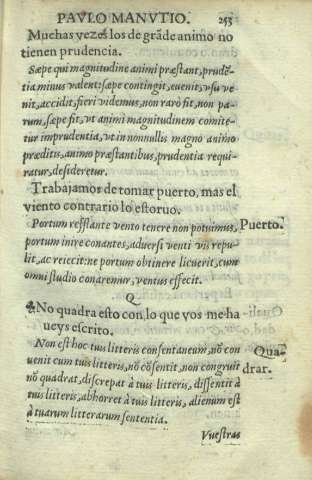 PAVLO MANVTIO. 253
Muchas vezes los de grãde animo no
tienen prudencia.
Sæpe qui magnitudine animi præstant, prudẽ-
tia minus valent: sæpe contingit, euenit, vsu ve
nit, accidit, fieri videmus, non rarò fit, non pa-
rum, sæpe fit, vt animi magnitudinem comite-
tur imprudentia, vt in nonnullis magno animo
præditis, animo præstantibus, prudentia requi-
ratur, desideretur.
Trabajamos de tomar puerto, mas el
viento contrario lo estoruo.
Portum refflante vento tenere non potuimus, Puerto.
portum inire conantes, aduersi venti vis repu-
lit, ac reiecit: ne portum obtinere licuerit, cum
omni studio conaremur, ventus effecit.
Q
No quadra esto con lo que vos me ha
ueys escrito.
Non est hoc tuis litteris consentaneum, nõ con
uenit cum tuis litteris, nõ cõsentit, non congruit Qua-
nõ quadrat, discrepat à tuis litteris, dissentit à drar.
tuis litteris, abhorret à tuis litteris, alienum est
à tuarum litterarum sententia.
Vuestras